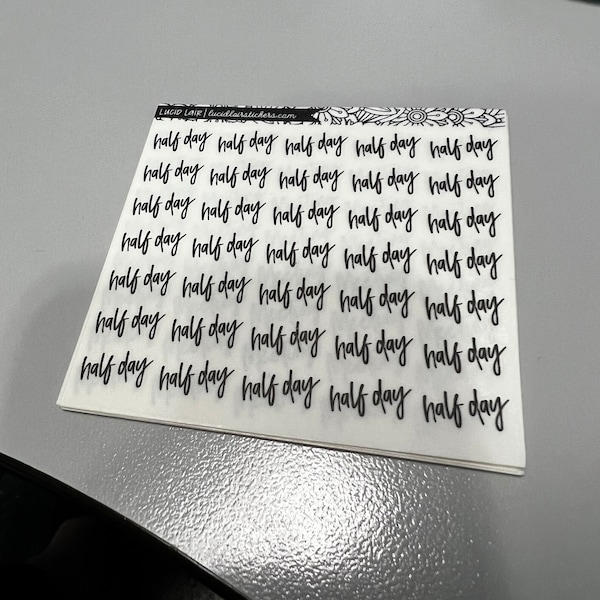 LUCID LAIR | lucidlairstickers.com
half day half day half day half day half day
half day half day half day half day half day
half day half day half day half day half day
half day half day half day half day half day
half day half day half day half day half day
half day half day half day half day half day
half day half day half day half day half day